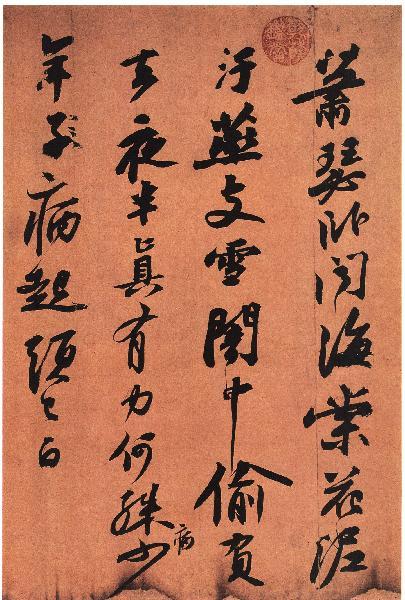 蕭瑟臥聞海棠花泥
汙燕支雪闇中偷負
去夜半真有力何殊病少
年子病起頭已白